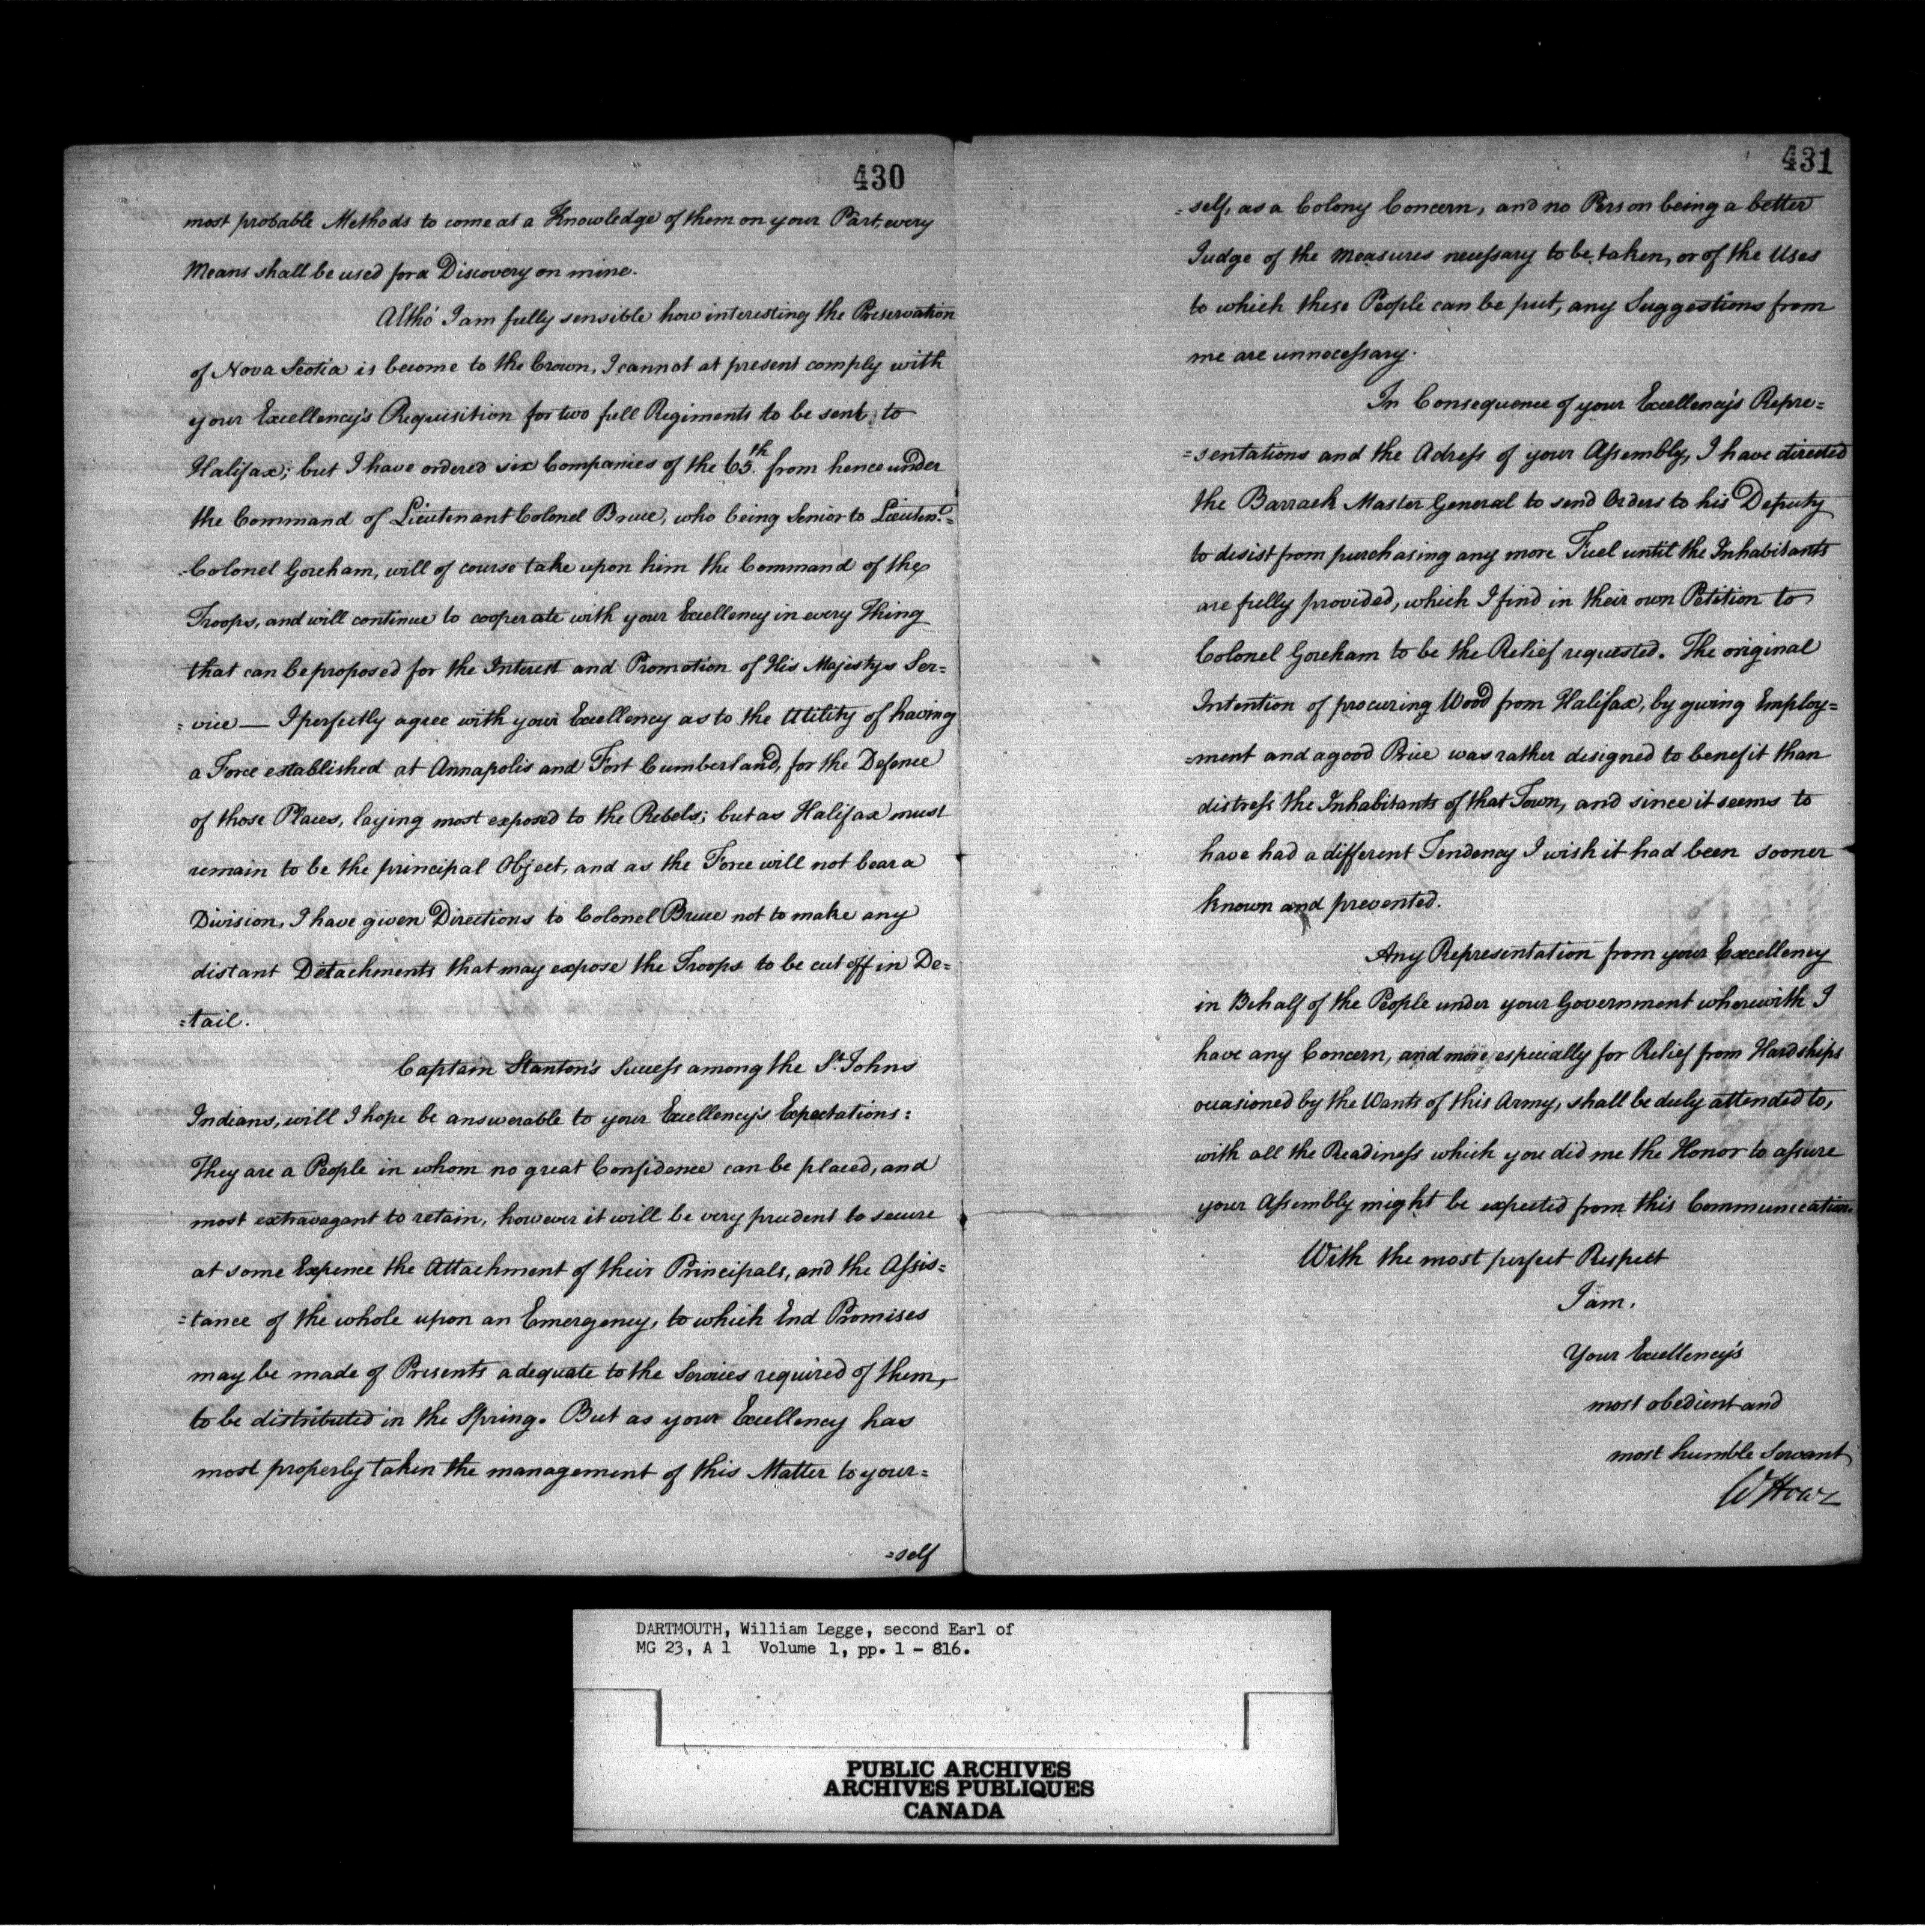 430
most probable Methods to come at a Knowledge of them on your Part, every
Means shall be used for a Discovery on mine.
Altho' I am fully sensible how interesting the Preservation
of Nova Scotia is become to the Crown, I cannot at present comply with
your Excellency's Requisition for two full Regiments to be sent to
Halifax; but I have ordered six Companies of the 65th. from hence under
the Command of Lieutenant Colonel Bruce, who being Senior to Lieuten.t=
=Colonel Goreham, will of course take upon him the Command of the
Troops, and will continue to cooperate with your Excellency in every Thing
that can be proposed for the Interest and Promotion of His Majestys Ser=
=vice — I perfectly agree with your Excellency as to the Utility of having
a Force established at Annapolis and Fort Cumberland, for the Defence
of those Places, laying most exposed to the Rebels; but as Halifax must
remain to be the principal Object, and as the Force will not bear a
Division, I have given Directions to Colonel Bruce not to make any
distant Detachments that may expose the Troops to be cut off in De=
=tail.
Captain Stanton's Success among the St. Johns
Indians, will I hope be answerable to your Excellency's Expectations:
They are a People in whom no great Confidence can be placed, and
most extravagant to retain, however it will be very prudent to secure
at some Expence the Attachment of their Principals, and the Assis=
=tance of the whole upon an Emergency, to which End Promises
may be made of Presents adequate to the Services required of them,
to be distributed in the Spring. But as your Excellency has
most properly taken the management of this Matter to your=
=self
431
=self, as a Colony Concern, and no Person being a better
Judge of the measures necessary to be taken, or of the Uses
to which these People can be put, any Suggestions from
me are unnecessary.
In Consequence of your Excellency's Repre=
=sentations and the Adress of your Assembly, I have directed
the Barrack Master General to send Orders to his Deputy
to desist from purchasing any more Fuel until the Inhabitants
are fully provided, which I find in their own Petition to
Colonel Goreham to be the Relief requested. The original
Intention of procuring Wood from Halifax, by giving Employ=
=ment and a good Price was rather designed to benefit than
distress the Inhabitants of that Town, and since it seems to
have had a different Tendency I wish it had been sooner
known and prevented.
Any Representation from your Excellency
in Behalf of the People under your Government wherewith I
have any Concern, and more especially for Relief from Hardships
occasioned by the Wants of this Army, shall be duly attended to,
with all the Readiness which you did me the Honor to assure
your Assembly might be expected from this Communication.
With the most perfect Respect
I am.
Your Excellency's
most obedient and
most humble Servant
W Howe
DARTMOUTH, William Legge, second Earl of
MG 23, A 1 Volume 1, pp. 1 - 816.
PUBLIC ARCHIVES
ARCHIVES PUBLIQUES
CANADA